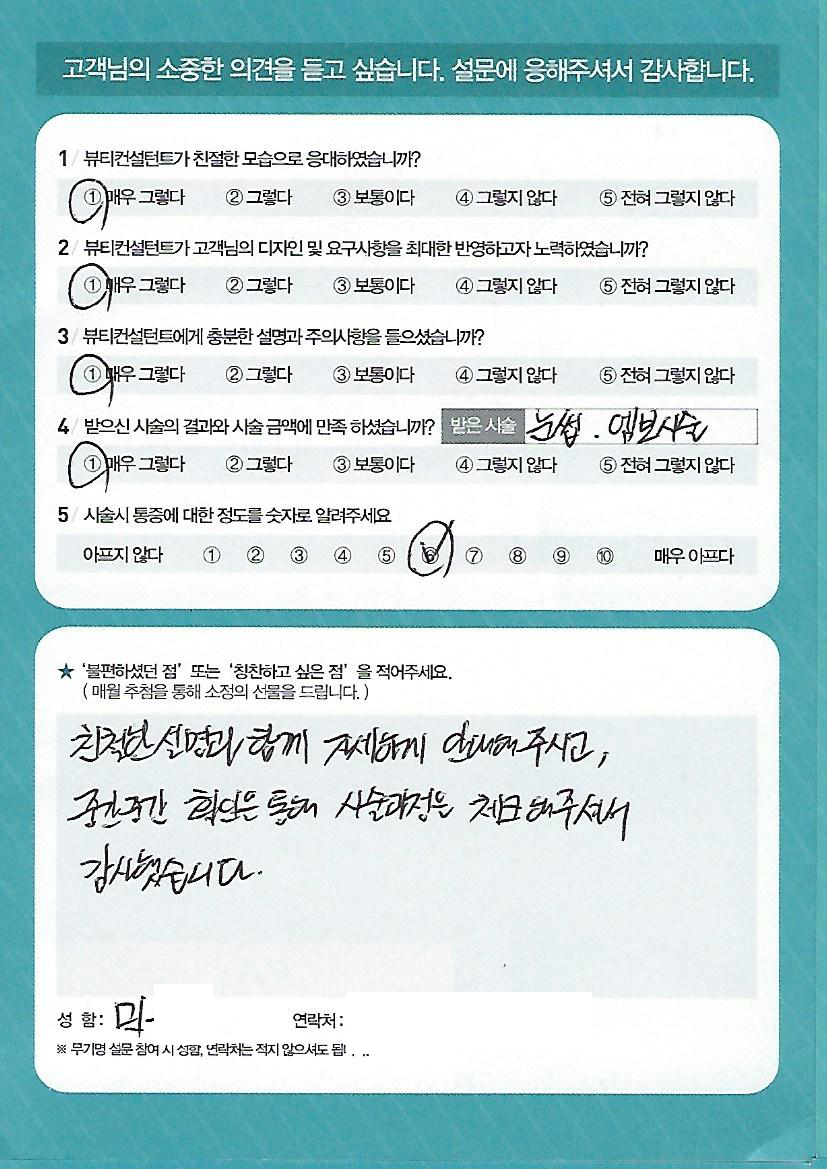 고객님의 소중한 의견을 듣고 싶습니다. 설문에 응해주셔서 감사합니다.
1 / 뷰티컨설턴트가 친절한 모습으로 응대하였습니까?
① 매우 그렇다 ② 그렇다 ③ 보통이다 ④ 그렇지 않다 ⑤ 전혀 그렇지 않다
2 / 뷰티컨설턴트가 고객님의 디자인 및 요구사항을 최대한 반영하고자 노력하였습니까?
① 매우 그렇다 ② 그렇다 ③ 보통이다 ④ 그렇지 않다 ⑤ 전혀 그렇지 않다
3 / 뷰티컨설턴트에게 충분한 설명과 주의사항을 들으셨습니까?
① 매우 그렇다 ② 그렇다 ③ 보통이다 ④ 그렇지 않다 ⑤ 전혀 그렇지 않다
4 / 받으신 시술의 결과와 시술 금액에 만족 하셨습니까? 받은 시술 눈썹. 엠보시술
① 매우 그렇다 ② 그렇다 ③ 보통이다 ④ 그렇지 않다 ⑤ 전혀 그렇지 않다
5 / 시술시 통증에 대한 정도를 숫자로 알려주세요
아프지 않다 ① ② ③ ④ ⑤ ⑥ ⑦ ⑧ ⑨ ⑩ 매우 아프다
★ '불편하셨던 점' 또는 '칭찬하고 싶은 점' 을 적어주세요.
( 매월 추첨을 통해 소정의 선물을 드립니다. )
친절한 설명과 함께 자세하게 안내해 주시고,
중간중간 확인을 통해 시술과정을 체크해주셔서
감사했습니다.
성 함: 연락처:
※ 무기명 설문 참여 시 성함, 연락처는 적지 않으셔도 됩